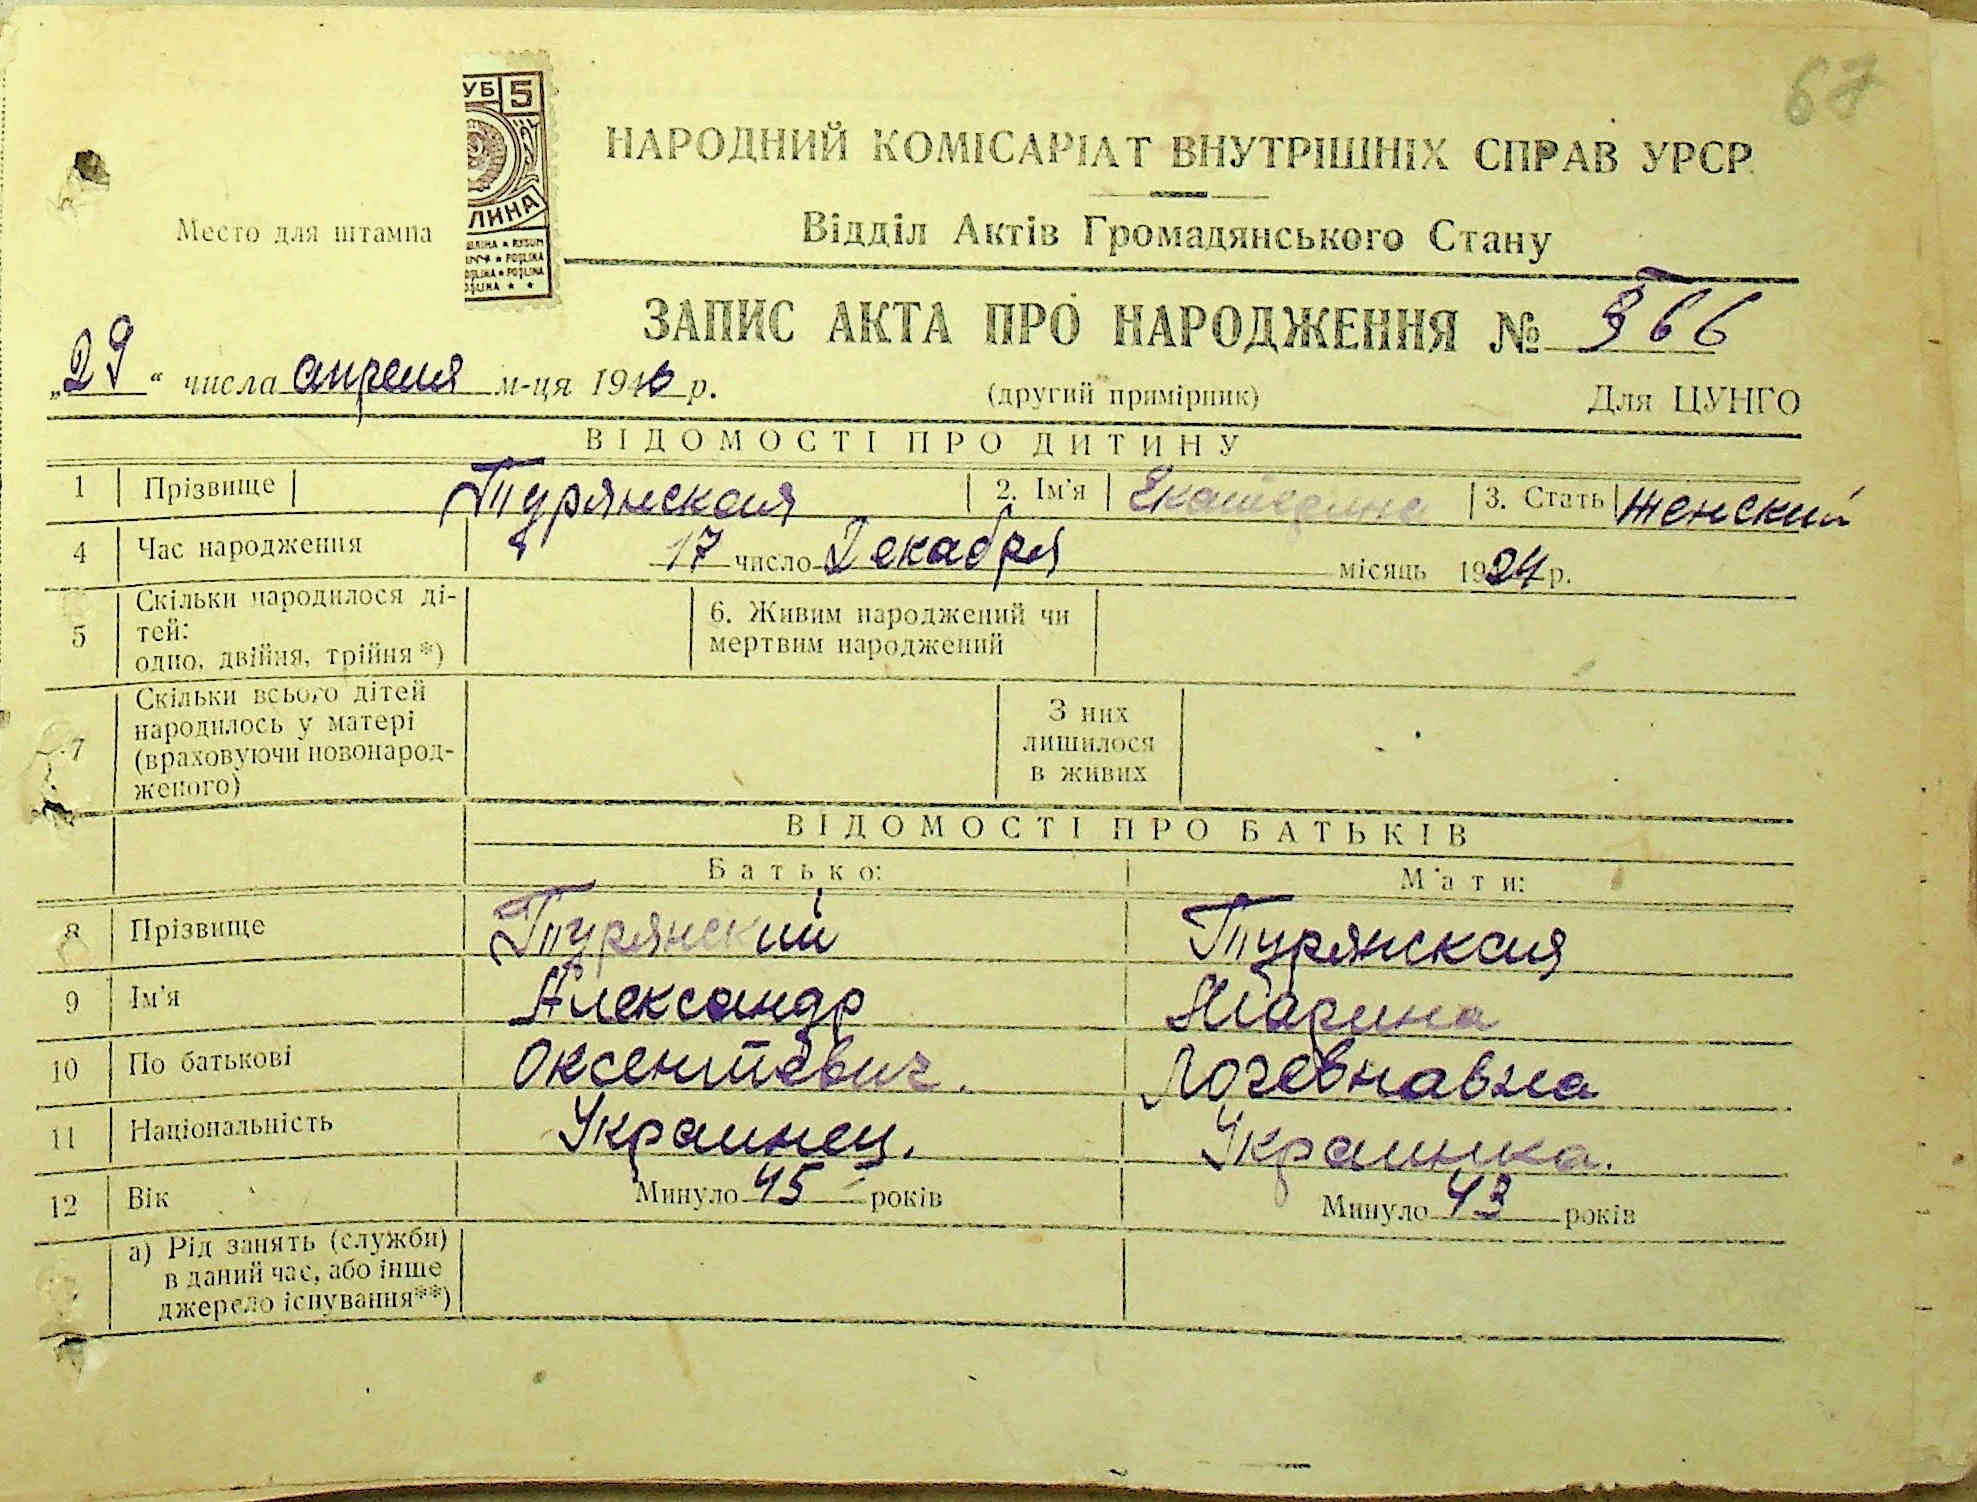 67
УБ 5
ЛИНА
НАРОДНИЙ КОМІСАРІАТ ВНУТРІШНІХ СПРАВ УРСР
Место для штампа
Відділ Актів Громадянського Стану
ЗАПИС АКТА ПРО НАРОДЖЕННЯ № 366
„29“ числа апреля м-ця 1946 р. (другий примірник) Для ЦУНГО
ВІДОМОСТІ ПРО ДИТИНУ
1 Прізвище Турянская 2. Ім'я Екатерина 3. Стать Женский
4 Час народження 17 число Декабря місяць 1924 р.
5 Скільки народилося ді-
тей:
одно, двійня, трійня*)
6. Живим народжений чи
мертвим народжений
7 Скільки всього дітей
народилось у матері
(враховуючи новонарод-
женого)
З них
лишилося
в живих
ВІДОМОСТІ ПРО БАТЬКІВ
Батько: Мати:
8 Прізвище Турянский Турянская
9 Ім'я Александр Марина
10 По батькові Оксентевич.
11 Національність Украинец. Украинка.
12 Вік Минуло 45 років Минуло 43 років
а) Рід занять (служби)
в даний час, або інше
джерело існування**)